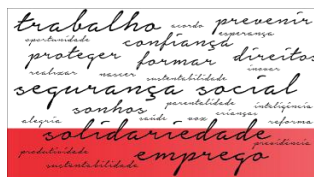 trabalho acordo prevenir
oportunidade confiança esperança
proteger formar direitos
realizar nascer sustentabilidade inovar
segurança social
sonhos parentalidade inteligência
alegria saúde voz crianças reforma
solidariedade
produtividade emprego previdência
sustentabilidade